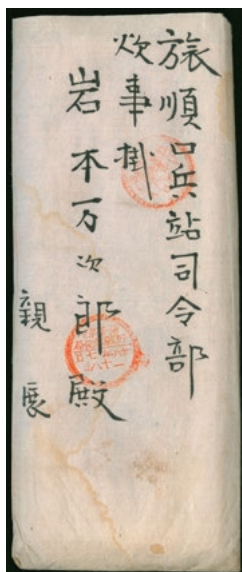 旅順口兵站司令部
炊事掛
岩本万次郎殿
親展